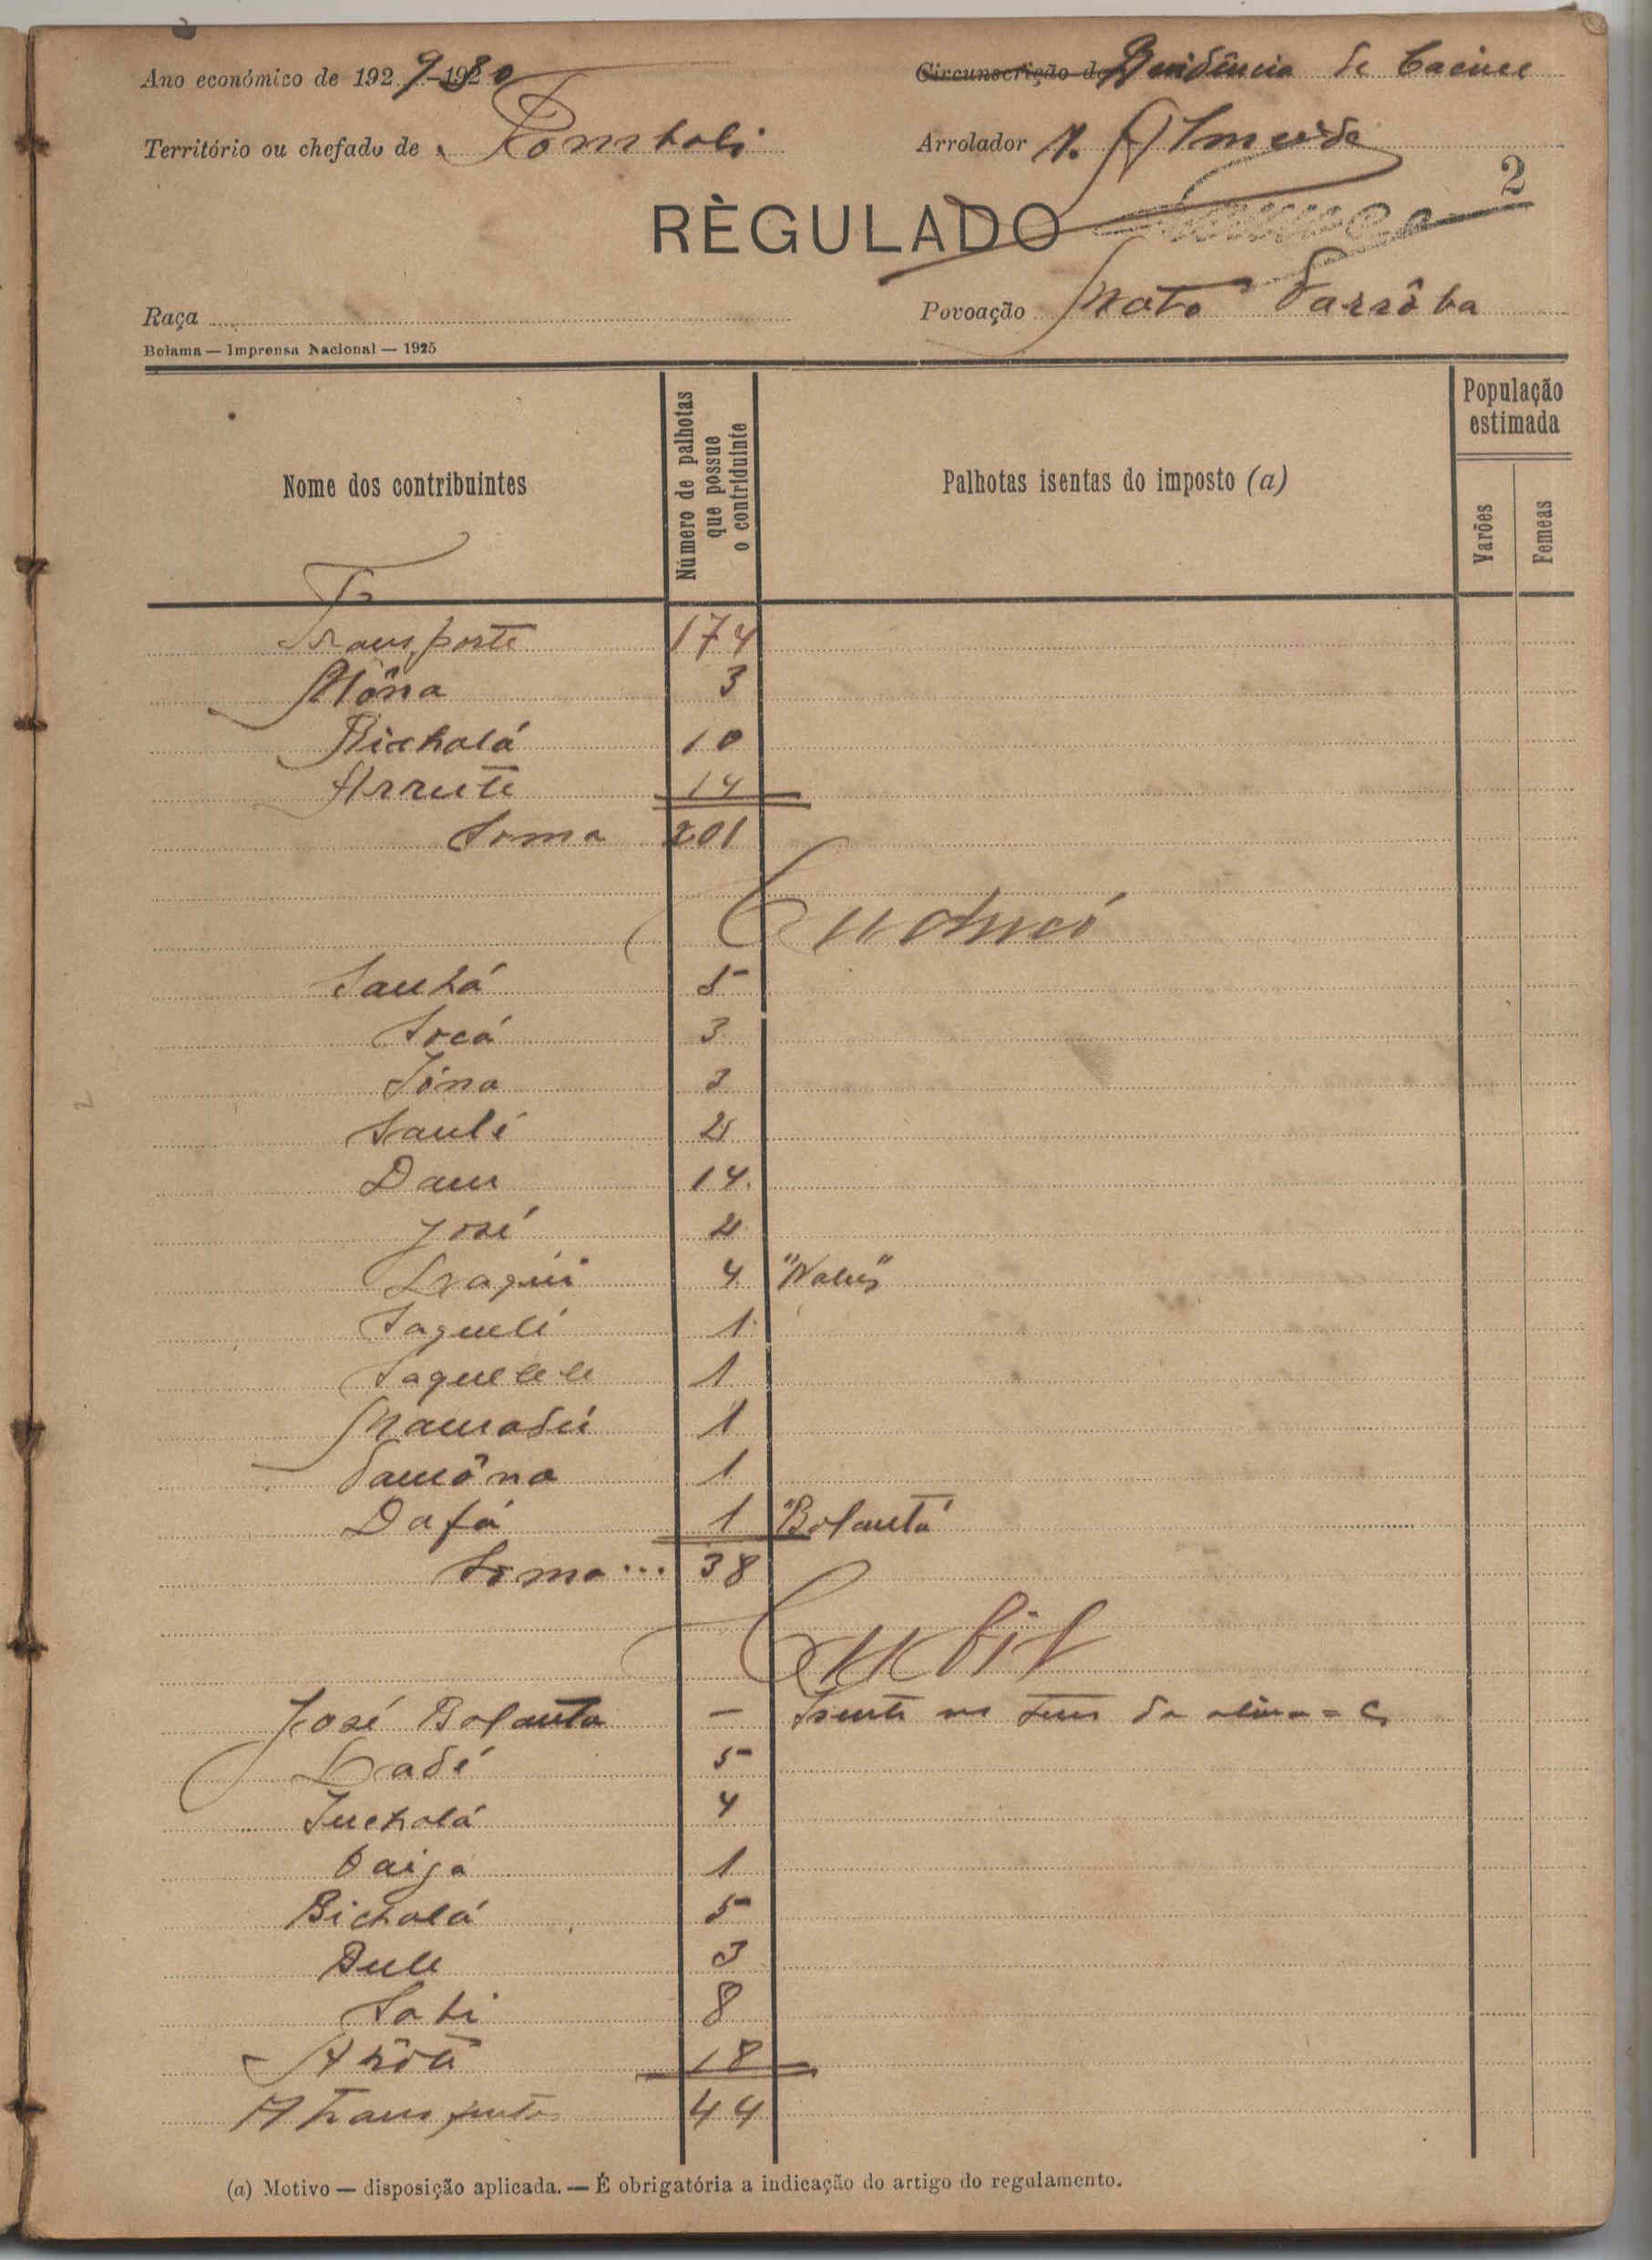 Ano económico de 1929-1930
Circunscrição de Residência de Cacine
Território ou chefado de Tombali
Arrolador A. Almeida
2
RÈGULADO
Raça
Povoação Mato Farrôba
Bolama — Imprensa Nacional — 1925
Nome dos contribuintes
Número de palhotas que possue o contriduinte
Palhotas isentas do imposto (a)
População estimada
Varões
Femeas
Transporte 174
Môna 3
Bicholá 10
Arrute 14
Soma 201
Cuducó
Sanhá 5
Socá 3
Jóna 3
Saulé 2
Dam 14
José 2
4 "Nalus"
Saguelé 1
1
Mamadú 1
Samôna 1
Dafá 1 "Balanta"
Soma... 38
Cubil
José Balanta —
Ladé 5
Jucholá 4
Caiga 1
Bicholá 5
Bule 3
Sabi 8
18
A transportar 44
(a) Motivo — disposição aplicada. — É obrigatória a indicação do artigo do regulamento.